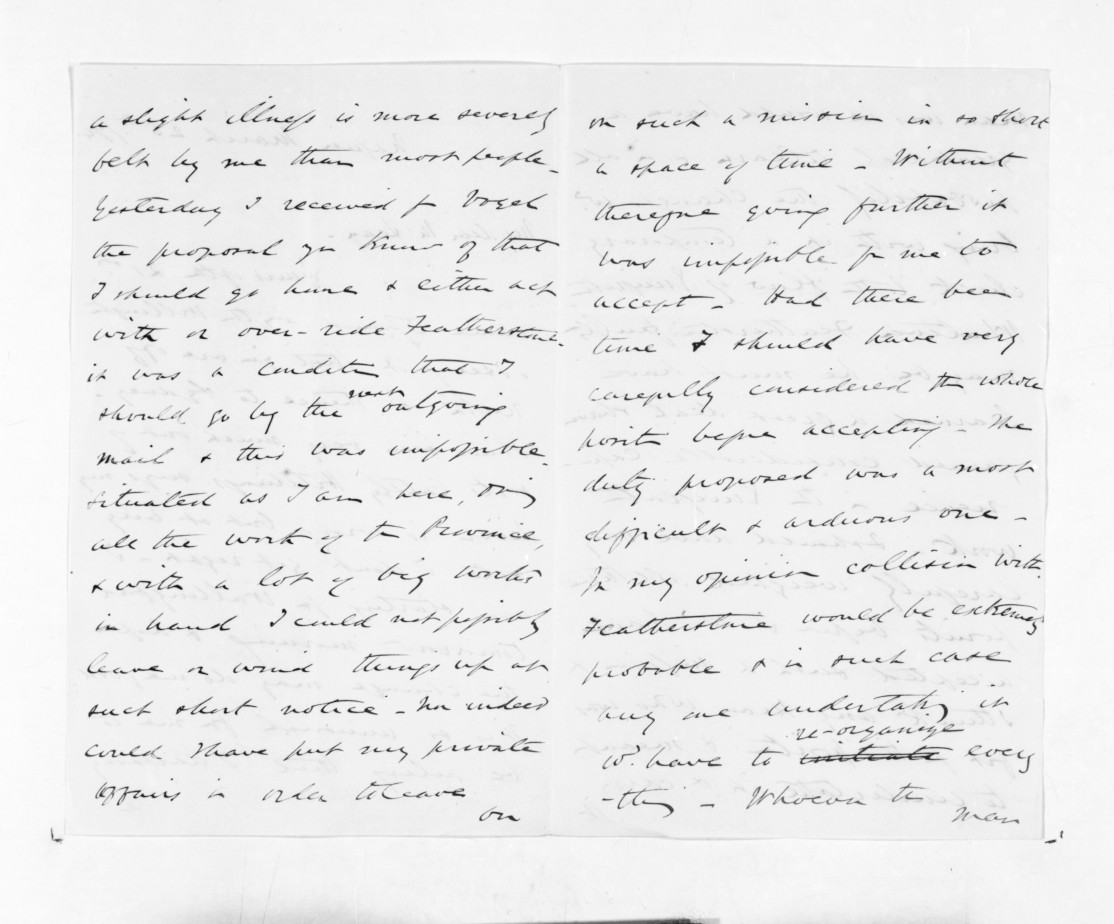 a slight illness is more severely
felt by me than most people -
Yesterday I received fr Vogel
the proposal you know of that
I should go home & either act
with or over-ride Featherstone -
it was a condition that I
should go by the next outgoing
mail & this was impossible -
situated as I am here, doing
all the work of the Province,
& with a lot of big works
in hand I could not possibly
leave or wind things up at
such short notice - Nor indeed
could I have put my private
affairs in order to leave
on
on such a mission in so short
a space of time - Without
therefore going further it
was impossible for me to
accept - Had there been
time I should have very
carefully considered the whole
posit before accepting - The
duty proposed was a most
difficult & arduous one -
In my opinion collision with
Featherstone would be extremely
probable & in such case
any one undertaking it
wd. have to initiate re-organize every
-thing - Whoever the
man